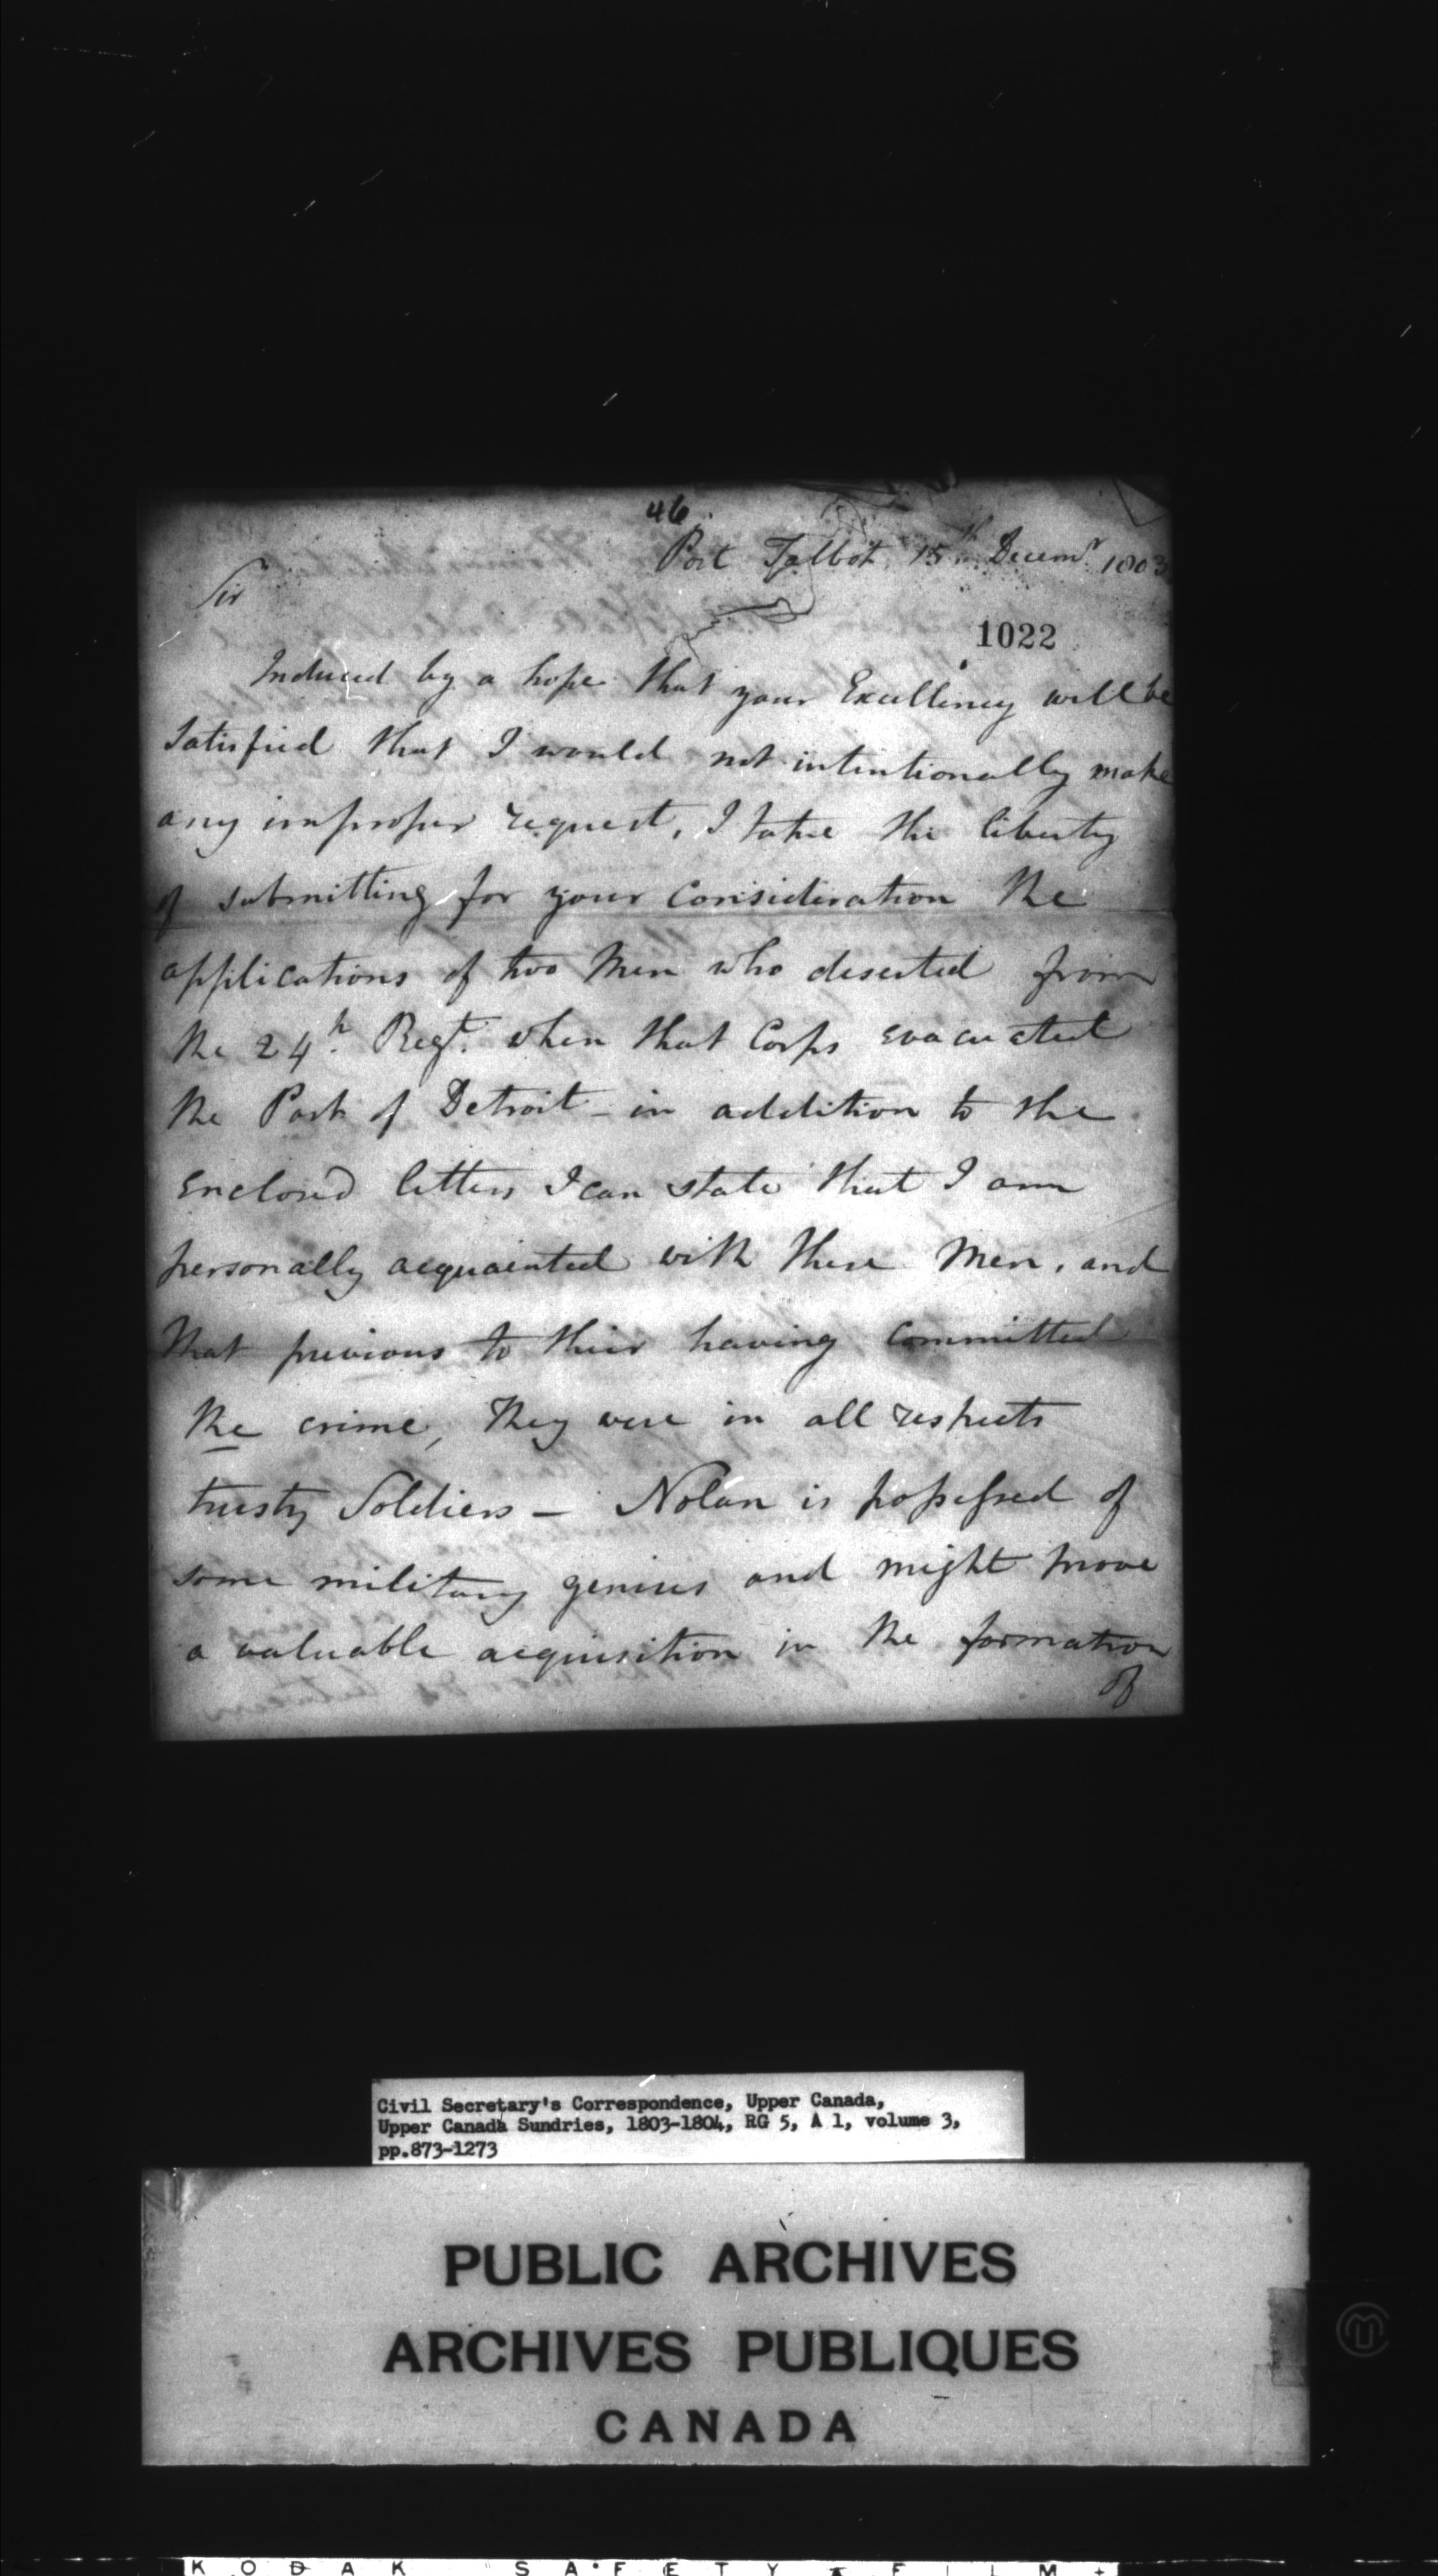 46.
Port Talbot, 15th Decemr 1803
Sir
1022
Induced by a hope that your Excellency will be
satisfied that I would not intentionally make
any improper request, I take the liberty
of submitting for your Consideration the
applications of two Men who deserted from
the 24th. Regt. when that Corps evacuated
the Post of Detroit - in addition to the
enclosed letters I can state that I am
personally acquainted with these Men, and
that previous to their having committed
the crime, they were in all respects
trusty Soldiers — Nolan is possessed of
some military genius and might prove
a valuable acquisition in the formation
of
Civil Secretary's Correspondence, Upper Canada,
Upper Canada Sundries, 1803-1804, RG 5, A 1, volume 3,
pp.873-1273
PUBLIC ARCHIVES
ARCHIVES PUBLIQUES
CANADA
KODAK SAFETY FILM